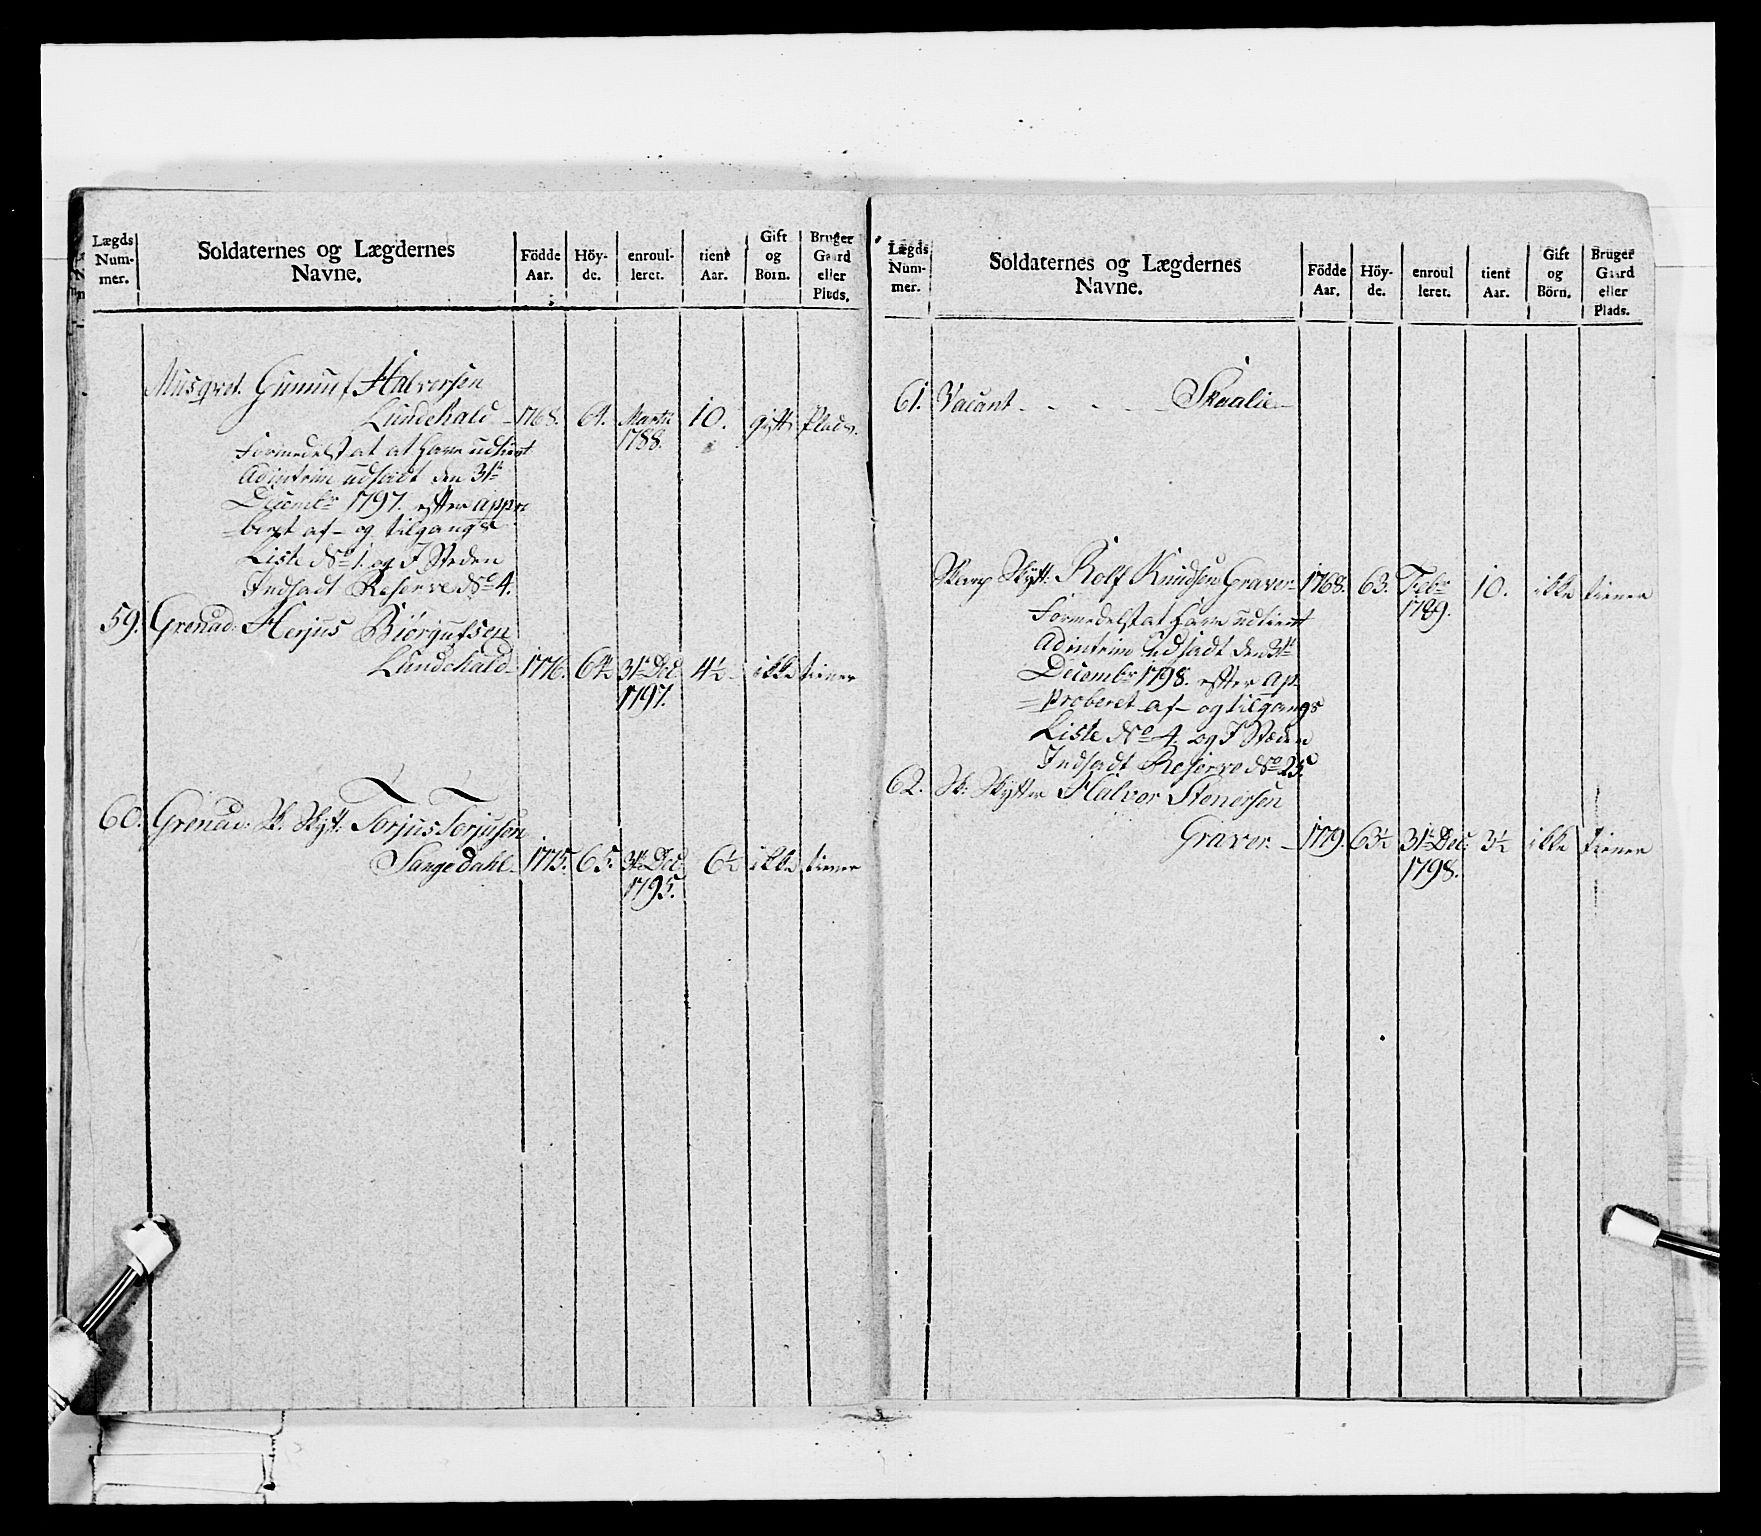 Lægds Num- mer.
Soldaternes og Lægdernes Navne.
Födde Aar.
Höy- de.
enroul- leret.
tient Aar.
Gift og Born.
Bruger Gaard eller Plads.
Musqvet. Gunnuf Halversen
Lundekald 1768. 64. Martii 1788. 10. gift Plads.
Formedelst at at have udtient
Adintrim udsadt den 31te
Decembr 1797. efter appro
=beret af- og tilgangs
Liste No 1. og I Steden
Indsadt Reserve No 4.
59. Grenad: Herjus Biörgufsen
Lundekald 1776. 64½ 31te Dec 1797. 4½ ikke tiener
60. Grenad: Sk. Skytt: Torjus Torjusen
Sangedahl 1775. 65. 31te Dec 1795. 6½ ikke tiener
Lægds Num- mer.
Soldaternes og Lægdernes Navne.
Födde Aar.
Höy- de.
enroul leret.
tient Aar.
Gift og Börn.
Bruger Gaard eller Plads.
61. Vacant - - - - Skaalie
Skarp Skytt: Rolf Knudsen Graver 1768. 63. Febr 1789. 10. ikke tiener
Formedelst at have udtient
Adintrim udsadt den 31te
Decembr 1798. efter ap-
=proberet af- og tilgangs
Liste No 4. og I Steden
Indsadt Reserve No 25.
62. Sk. Skytter Halvor Stenersen
Graver 1779. 63½ 31te Dec 1798. 3½ ikke tiener